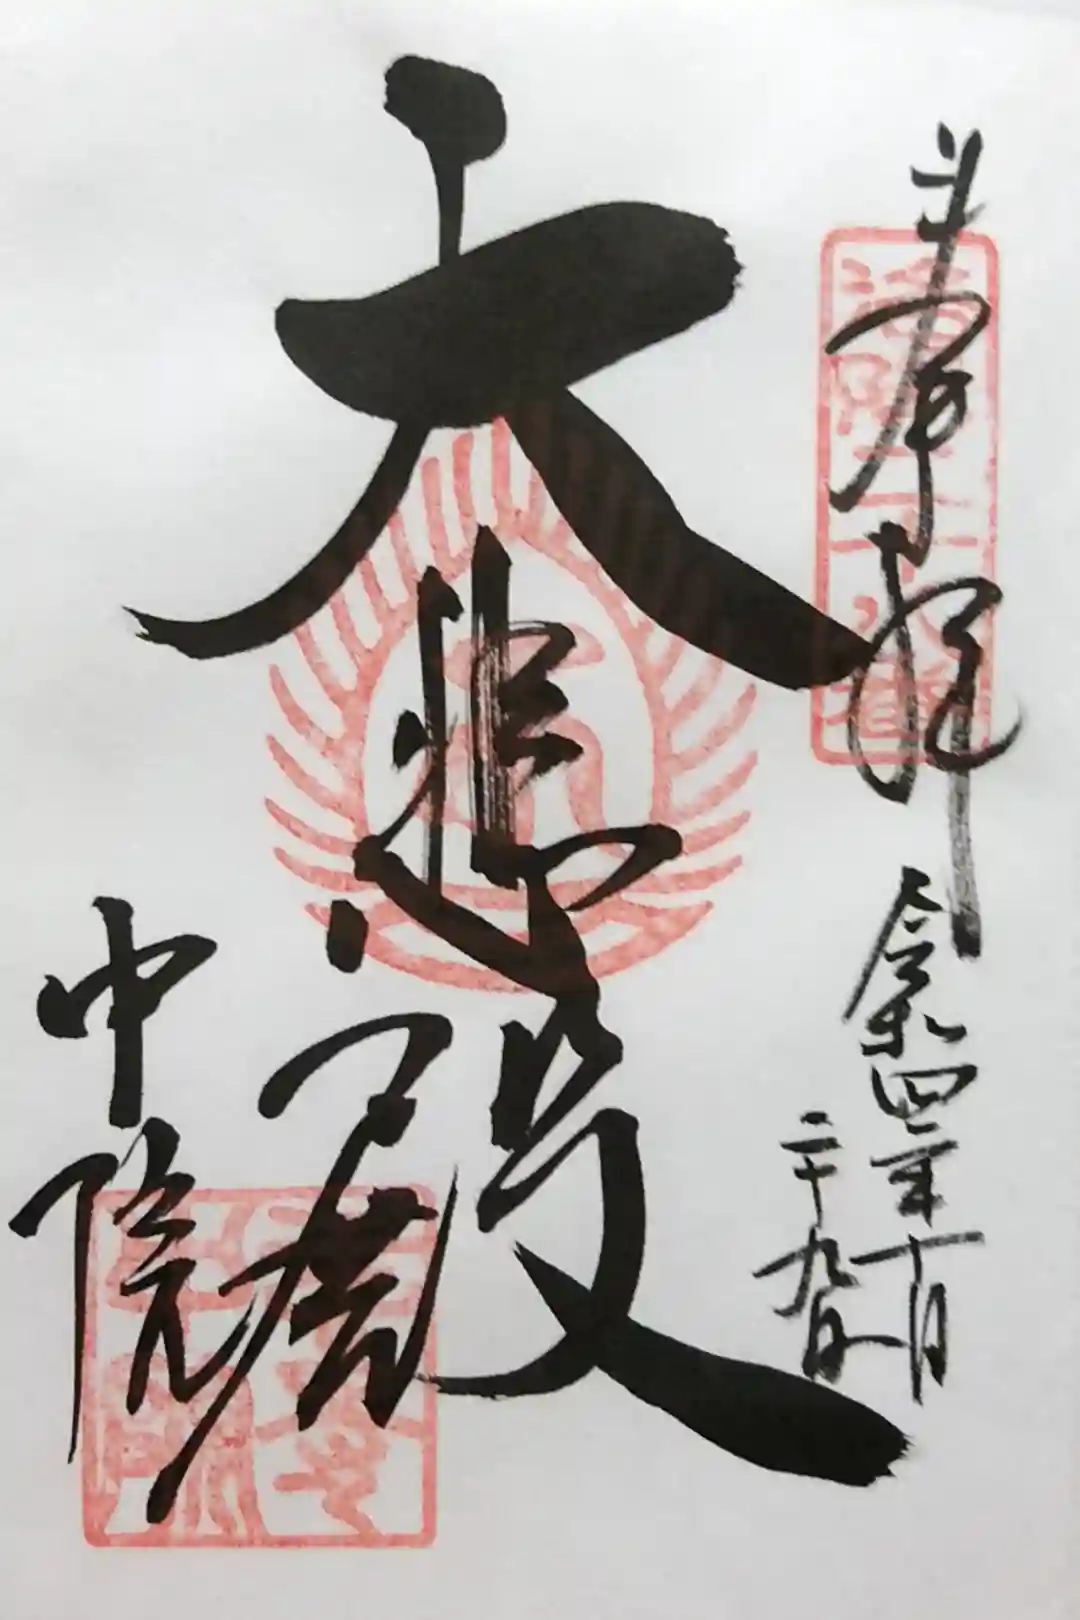 奉拝
令和四年十月
二十九日
大悲殿
中院